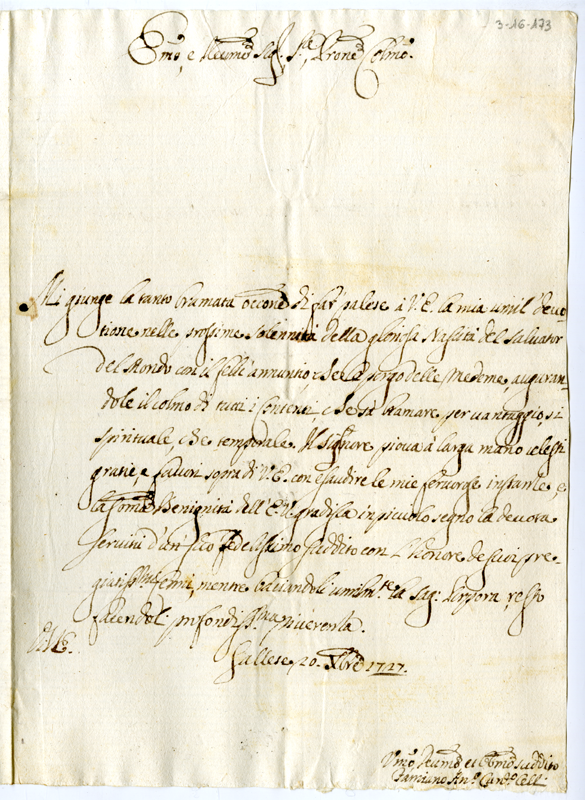 3-16-173
Emo, e Reumo Sig.r, Sig.r, Prone Colmo.
Mi giunge la tanto bramata occone di far palese à V.E. la mia umil devo
tione nelle prossime solennità della gloriosa Nascita del Salvator
del Mondo con il felice annuntio che la porgo delle medeme, auguran
dole il colmo di tutti i contenti che sà bramare per vantaggio, sì
spirituale, che temporale. Il Signore piova à larga mano celesti
gratie, e favori sopra di V.E. con esaudire le mie fervorose instanze, e
la somma Benignità dell'E.V. gradisca in picciolo segno la devota
servitù d'un suo fedelissimo suddito con l'honore de suoi pre
giatissmi cenni, mentre baciandoli umilmte la Sag: Porpora, resto
facendoli profondissma riverenza.
Di V.E.
Gallese, 20. Xbre 1727.
Umo, Deumo et Obmo suddito
Damiano Ant.o